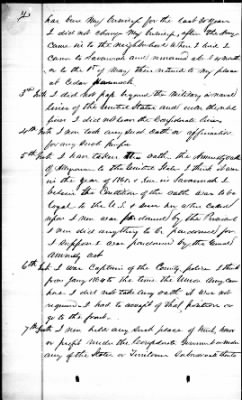 4
has been my business for the last 20 years
I did not change my business, after the Army
came in to the neighborhood when I had I
came to Savannah and remained about 6 month
or to the 1st of May, then returned to my place
at Cedar Hammock
3rd Int. I did not pass beyond the military or naval
lines of the United States and
I did not leave the Confederate lines
4th Int. I never took any such oath or affirmation
for any such purpose
5th Int. I have taken the oath, the Amnesty oath
of allegiance to the United States I think it was
in the year of 1865 & was in Savannah I
believe the Condition of the oath was to be
loyal to the U.S. &
I never was pardoned by the President
I never did anything to be pardoned for
I suppose I was pardoned by the General
amnesty act
6th Int. I was Captain of the County police I think
from Jany 1864 to the time the Union Army came
here I did not take any oath it was not
required I had to accept of that position or
go to the front.
7th Int. I never held any such place of trust, honor
or profit under the Confederate Government or under
any of the States or Territories Subordinate thereto